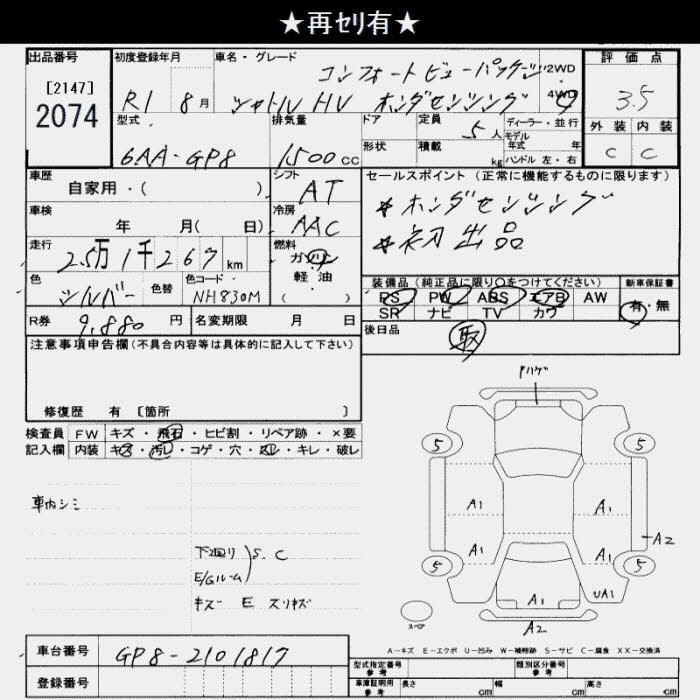 ★再セリ有★
出品番号 初度登録年月 車名・グレード 評価点
[2147] コンフォートビューパッケージ 2WD
2074 R1 8月 シャトル HV ホンダセンシング 4WD 3.5
型式 排気量 ドア 定員 5人 ディーラー・並行 外装 内装
モデル
年式 年
6AA-GP8 1500cc 形状 積載 kg ハンドル 左・右 C C
車歴 シフト セールスポイント(正常に機能するものに限ります)
自家用・( ) AT *ホンダセンシング
車検 冷房 *初出品
年 月( 日) AAC
走行 燃料
2.5万1千267km ガソリン
色 色替 色コード 軽油 装備品(純正品に限り○をつけてください) 新車保証書
シルバー NH830M ( ) PS PW ABS エアB AW 有・無
R券 9,880円 名変期限 月 日 SR ナビ TV カワ
注意事項申告欄(不具合内容等は具体的に記入して下さい) 後日品 取
修復歴 有 〔箇所 〕
検査員 FW キズ・飛石・ヒビ割・リペア跡・×要
記入欄 内装 キズ・汚レ・コゲ・穴・スレ・キレ・破レ
Pハゲ
5 5
車内シミ A1 A1
A2
下廻り S.C A1 A1
E/Gルーム 5 5
キズ E スリキズ A1 UA1
スペア A2
A-キズ E-エクボ U-凹み W-補修跡 S-サビ C-腐食 XX-交換済
車台番号 GP8-2101817 型式指定番号 参考 類別区分番号 参考
登録番号 車庫証明用 参考 長さ cm 幅 cm 高さ cm